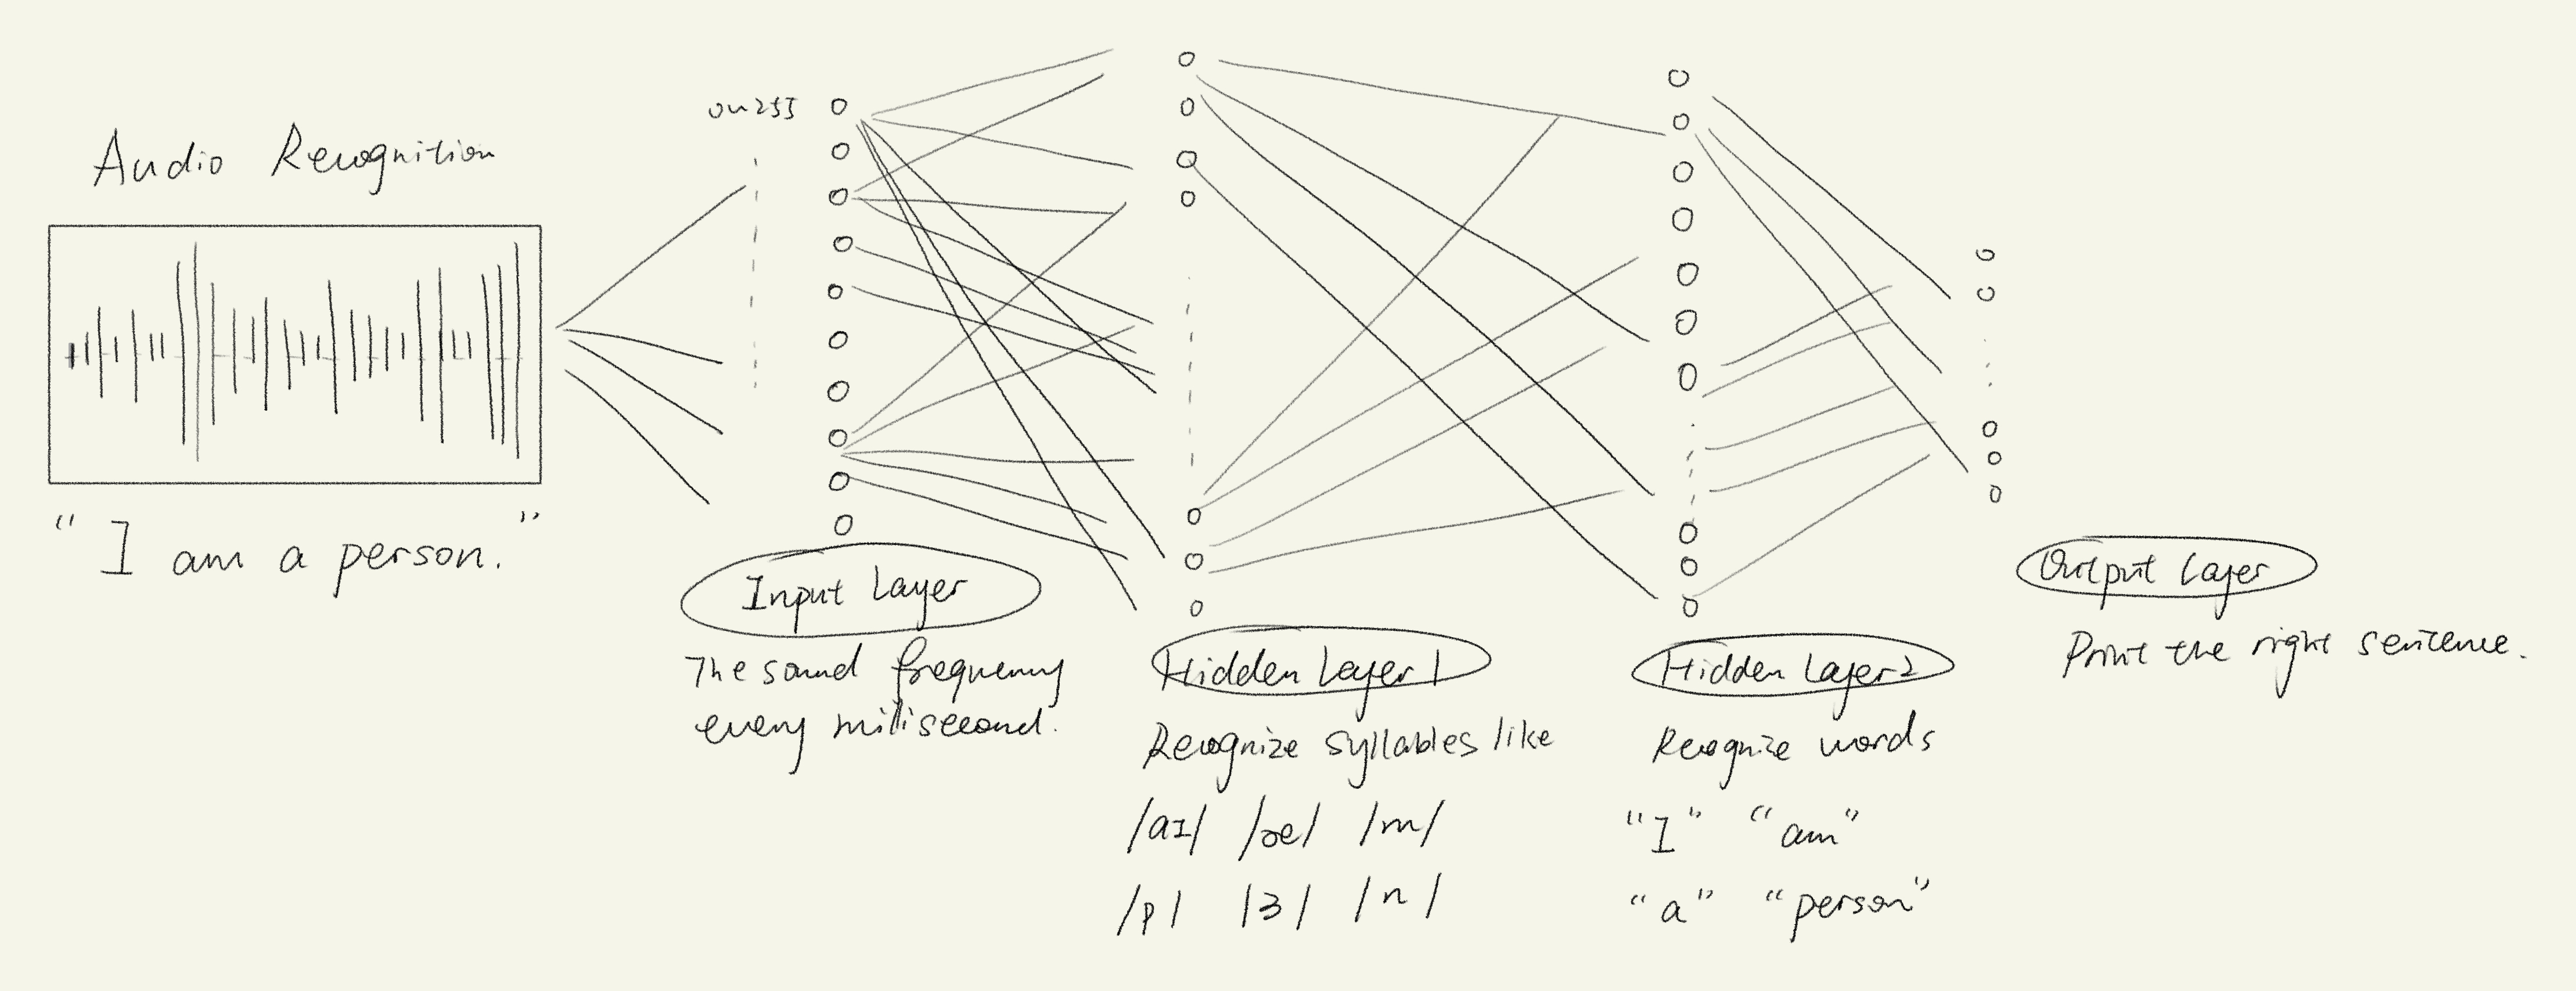 Audio Recognition
" I am a person. "
Input Layer
The sound frequency
every milisecond.
Hidden Layer 1
Recognize syllables like
/aɪ/ /æ/ /m/
/p/ /ɜ/ /n/
Hidden Layer 2
Recognize words
"I" "am"
"a" "person"
Output Layer
Print the right sentence.